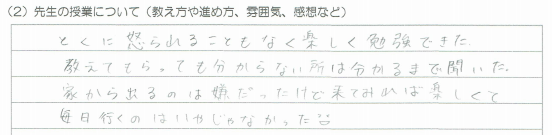 (2) 先生の授業について(教え方や進め方、雰囲気、感想など)
とくに怒られることもなく楽しく勉強できた。
教えてもらっても分からない所は分かるまで聞いた。
家から出るのは嫌だったけど来てみれば楽しくて
毎日行くのはいやじゃなかった